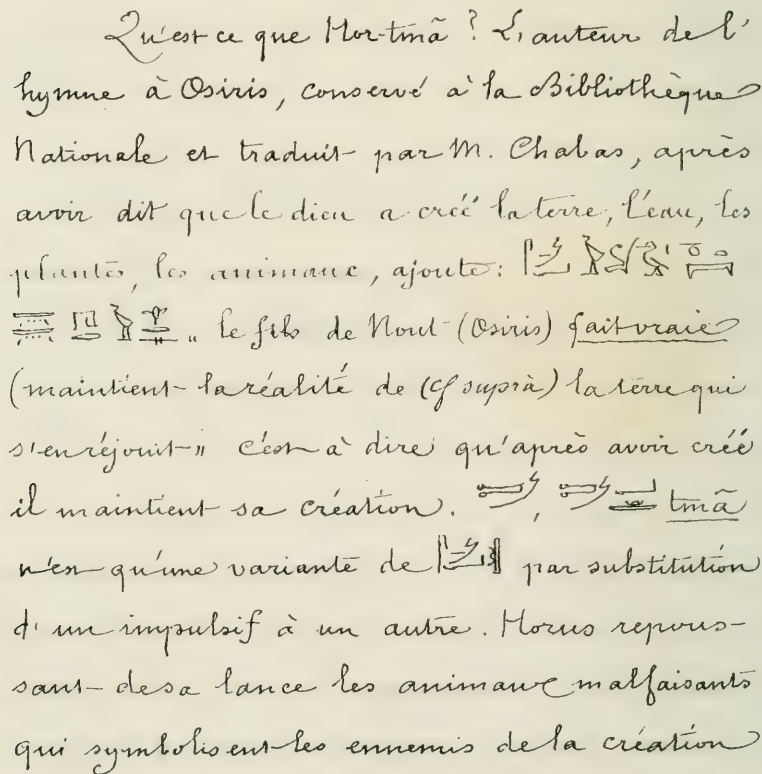 Qu'est-ce que Hor-tmâ ? L'auteur de l'
hymne à Osiris, conservé à la Bibliothèque
Nationale et traduit par M. Chabas, après
avoir dit que le dieu a créé la terre, l'eau, les
plantes, les animaux, ajoute:
„ le fils de Nout (Osiris) fait vraie
(maintient la réalité de (cf suprà) la terre qui
s'en réjouit „ c'est à dire qu'après avoir créé
il maintient sa création. , tmâ
n'est qu'une variante de par substitution
d'un impulsif à un autre. Horus repous-
sant de sa lance les animaux malfaisants
qui symbolisent les ennemis de la création